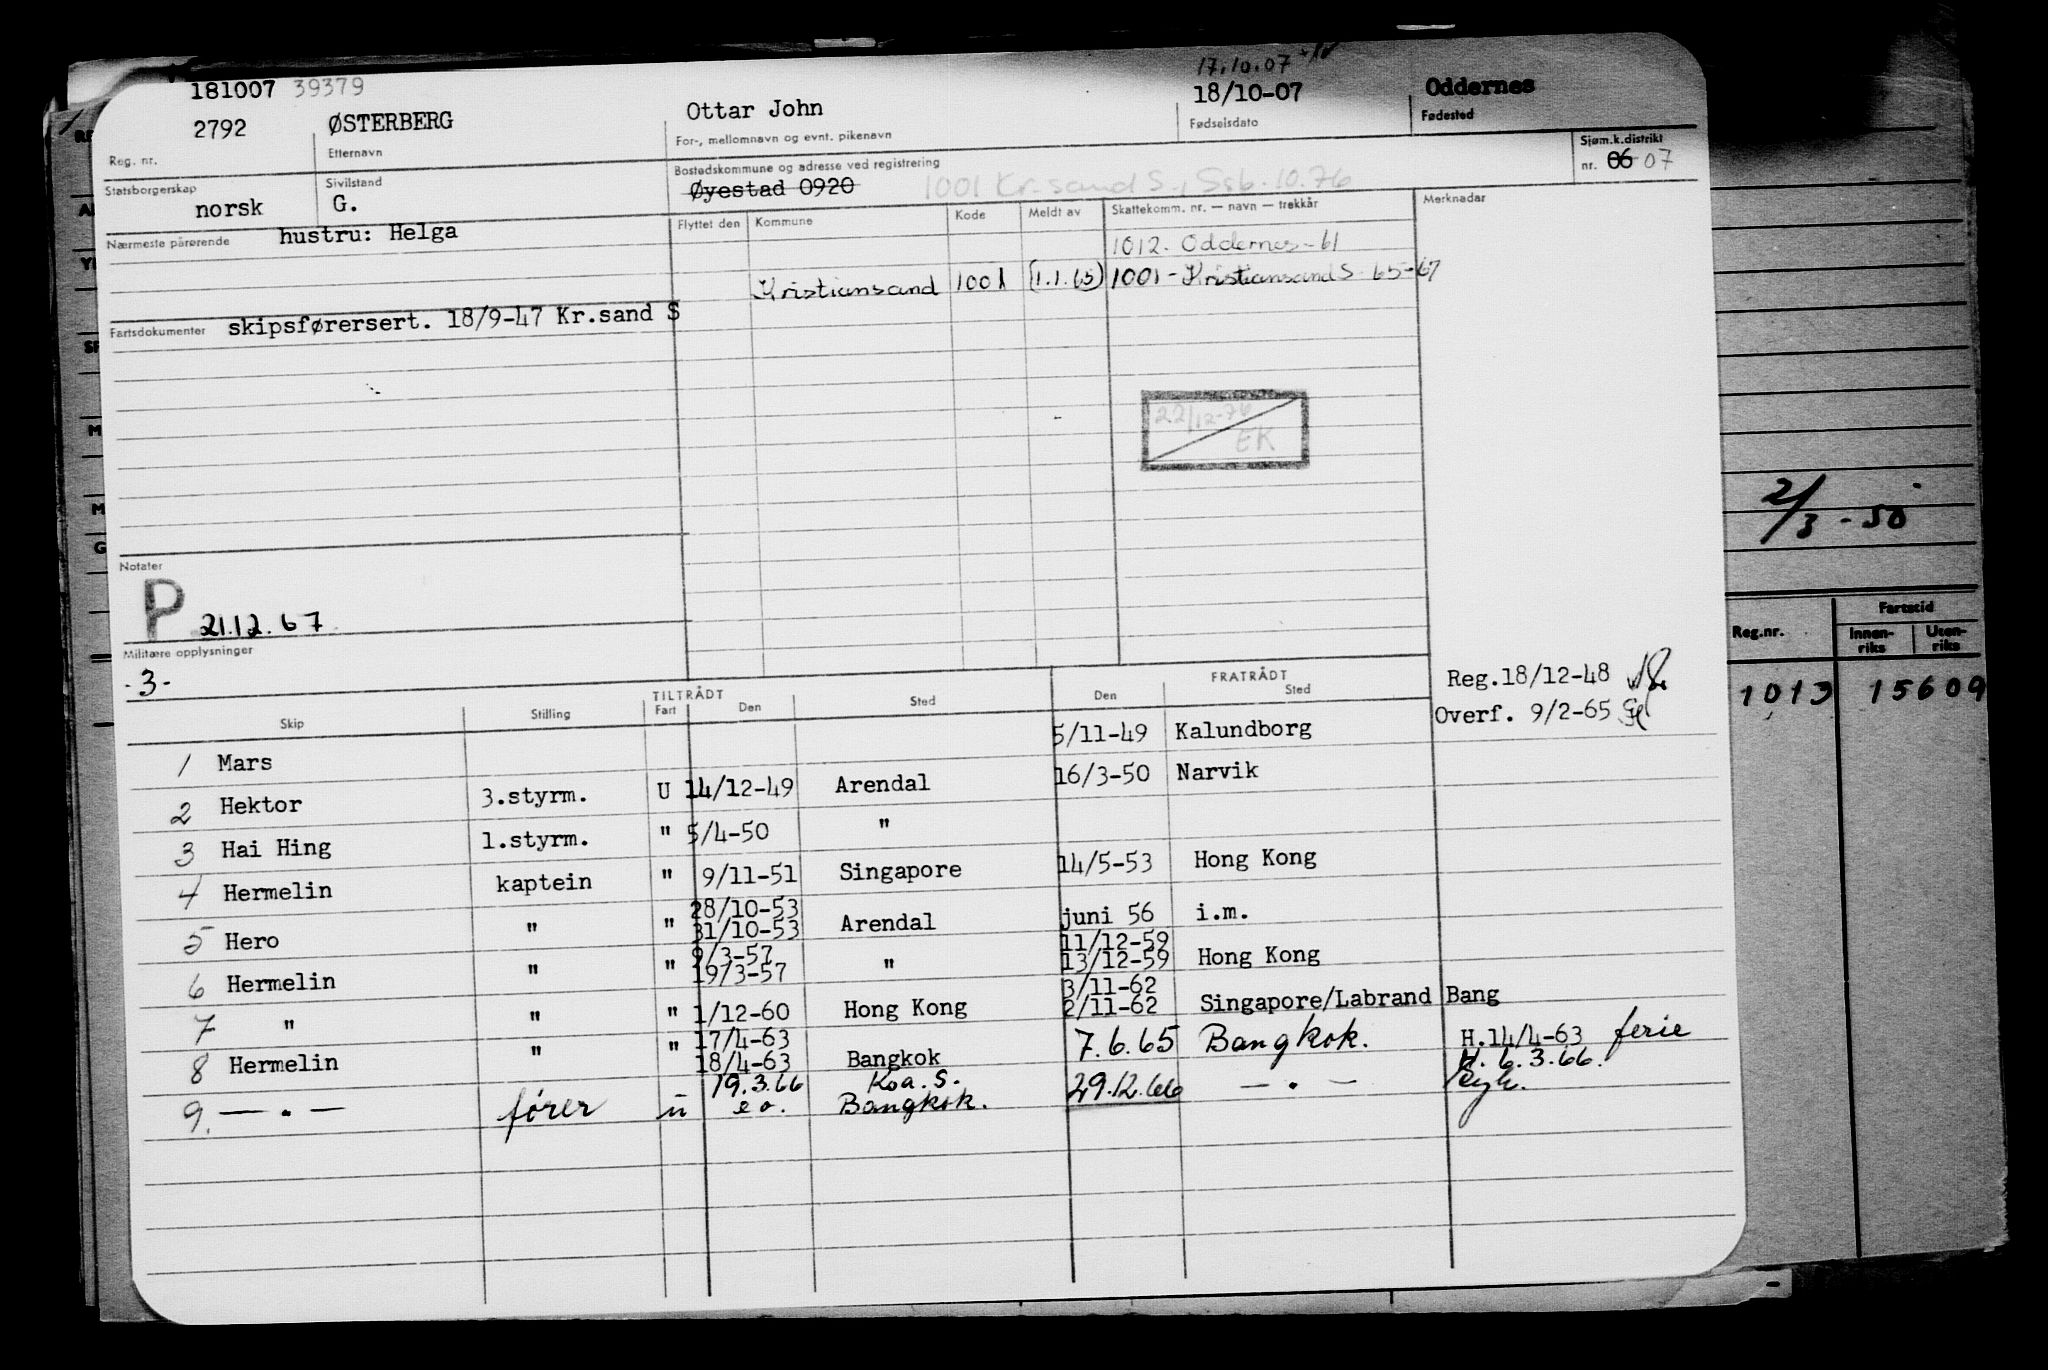 181007 39379
2792
Reg. nr.
ØSTERBERG
Etternavn
Ottar John
For-, mellomnavn og evnt. pikenavn
17.10.07
18/10-07
Fødselsdato
Oddernes
Fødested
Statsborgerskap
norsk
Sivilstand
G.
Bostedskommune og adresse ved registrering
Øyestad 0920 1001 Kr.sand S., Ssb. 10.76
Sjøm.k.distrikt
nr. 06 07
Nærmeste pårørende hustru: Helga
Flyttet den Kommune Kode Meldt av Skattekomm. nr. — navn — trekkår Merknadar
1012. Oddernes -61
Kristiansand 1001 (1.1.65) 1001 - Kristiansand S. 65-67
Fartsdokumenter skipsførersert. 18/9-47 Kr.sand S
22/12-76
EK
Notater
P 21.12.67
Militære opplysninger
-3-
Reg.18/12-48
Overf. 9/2-65
TILTRÅDT FRATRÅDT
Skip Stilling Fart Den Sted Den Sted
1 Mars 5/11-49 Kalundborg
2 Hektor 3.styrm. U 14/12-49 Arendal 16/3-50 Narvik
3 Hai Hing 1.styrm. " 5/4-50 "
4 Hermelin kaptein " 9/11-51 Singapore 14/5-53 Hong Kong
28/10-53
5 Hero " " 31/10-53 Arendal juni 56 i.m.
9/3-57 11/12-59
6 Hermelin " " 19/3-57 " 13/12-59 Hong Kong
3/11-62
7 " " " 1/12-60 Hong Kong 2/11-62 Singapore/Labrand Bang
17/4-63
8 Hermelin " " 18/4-63 Bangkok 7.6.65 Bangkok. H.14/4-63 ferie
19.3.66 Koa. S. H. 6.3.66.
9. — . — fører u e o. Bangkok. 29.12.66 — . — syk.
2/3 - 50
Reg.nr. Fartstid
Innen-riks Uten-riks
1013 15609